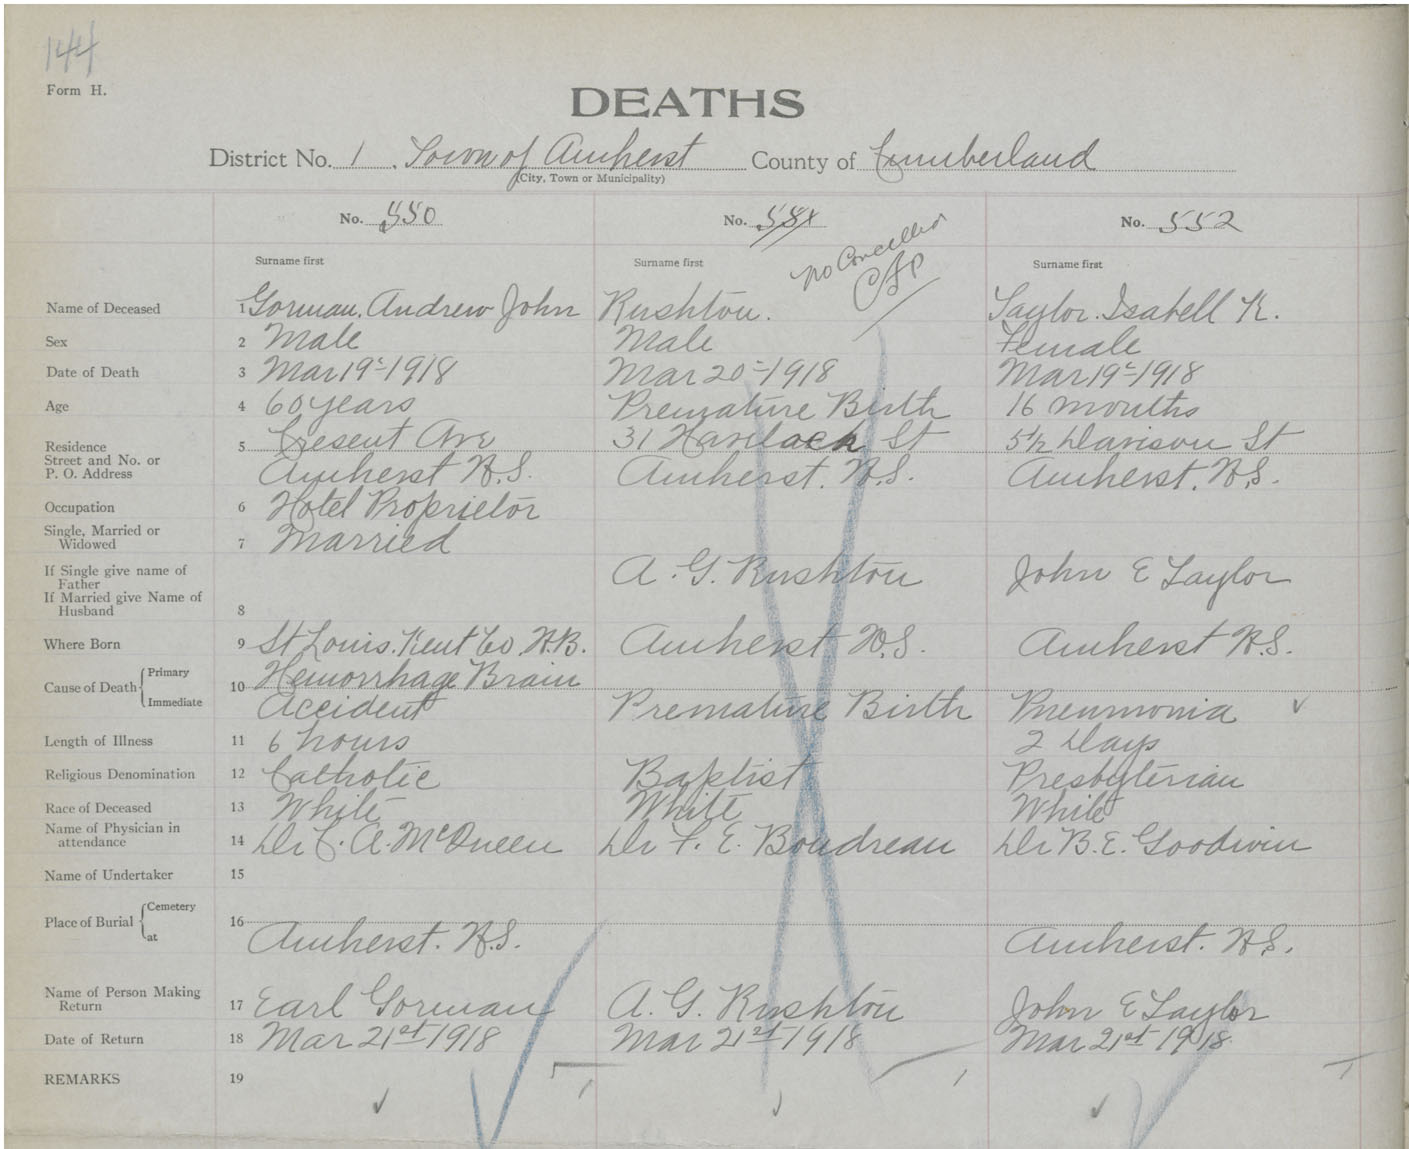 144
Form H.
DEATHS
District No. 1 Town of Amherst County of Cumberland
(City, Town or Municipality)
No. 550 No. 551 No. 552
no Cancelled
Surname first Surname first Surname first
Name of Deceased 1 Gorman, Andrew John Rushton. Taylor. Isabell K.
Sex 2 Male Male Female
Date of Death 3 Mar 19th 1918 Mar 20th 1918 Mar 19th 1918
Age 4 60 years Premature Birth 16 months
Residence 5 Cresent Ave 31 Havelack St 51½ Davison St
Street and No. or
P. O. Address Amherst N.S. Amherst. N.S. Amherst. N.S.
Occupation 6 Hotel Proprietor
Single, Married or
Widowed 7 Married
If Single give name of
Father A. G. Rushton John E Taylor
If Married give Name of
Husband 8
Where Born 9 St Louis. Kent Co. N.B. Amherst N.S. Amherst N.S.
Cause of Death Primary 10 Hemorrhage Brain
Immediate Accident Premature Birth Pneumonia
Length of Illness 11 6 hours 2 Days
Religious Denomination 12 Catholic Baptist Presbyterian
Race of Deceased 13 White White White
Name of Physician in
attendance 14 Dr C. A. McQueen Dr F. E. Boudreau Dr B. E. Goodwin
Name of Undertaker 15
Place of Burial Cemetery 16
at Amherst. N.S. Amherst. N.S.
Name of Person Making
Return 17 Earl Gorman A. G. Rushton John E Taylor
Date of Return 18 Mar 21st 1918 Mar 21st 1918 Mar 21st 1918
REMARKS 19